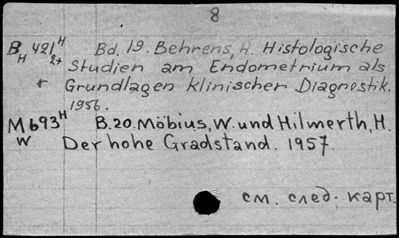 8
B H 421 H 2+ Bd. 19. Behrens, H. Histologische
Studien am Endometrium als
Grundlagen klinischer Diagnostik.
1956.
M 693 H W B. 20. Möbius, W. und Hilmerth, H.
Der hohe Gradstand. 1957.
см. след. карт.